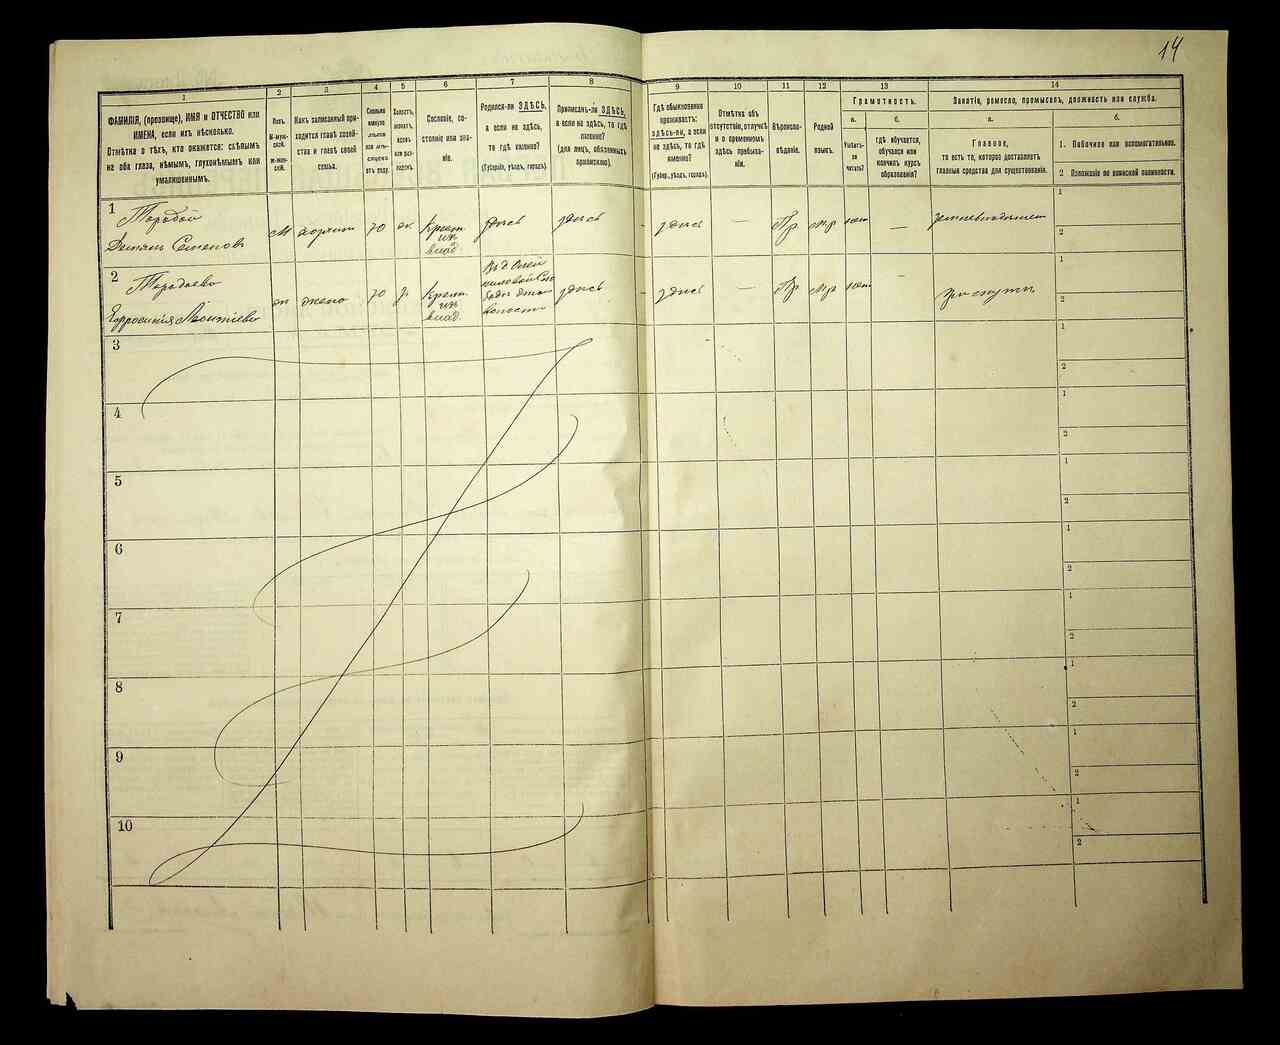 14
1
2
3
4
5
6
7
8
9
10
11
12
13
14
ФАМИЛІЯ, (прозвище), ИМЯ и ОТЧЕСТВО или
ИМЕНА, если ихъ нѣсколько.
Отмѣтка о тѣхъ, кто окажется: слѣпымъ
на оба глаза, нѣмымъ, глухонѣмымъ или
умалишеннымъ.
Полъ.
М-муж-
ской.
Ж-жен-
скій.
Какъ записанный при-
ходится главѣ хозяй-
ства и главѣ своей
семьи.
Сколько
минуло
лѣтъ
или мѣ-
сяцевъ
отъ роду.
Холостъ,
женатъ,
вдовъ
или раз-
веденъ.
Сословіе, со-
стояніе или зва-
ніе.
Родился-ли ЗДѢСЬ,
а если не здѣсь,
то гдѣ именно?
(Губернія, уѣздъ, городъ).
Приписанъ-ли ЗДѢСЬ,
а если не здѣсь, то гдѣ
именно?
(для лицъ, обязанныхъ
припискою).
Гдѣ обыкновенно
проживаетъ:
здѣсь-ли, а если
не здѣсь, то гдѣ
именно?
(Губер., уѣздъ, городъ).
Отмѣтка объ
отсутствіи, отлучкѣ
и о временномъ
здѣсь пребыва-
ніи.
Вѣроиспо-
вѣданіе.
Родной
языкъ.
Грамотность.
а.
Умѣетъ-
ли
читать?
б.
гдѣ обучается,
обучался или
кончилъ курсъ
образованія?
Занятіе, ремесло, промыселъ, должность или служба.
а.
Главное,
то есть то, которое доставляетъ
главныя средства для существованія.
б.
1. Побочное или вспомогательное.
2 Положеніе по воинской повинности.
1
Демьянъ Семеновъ
м
хозяинъ
70
ж.
Крест.
изъ
влад.
здѣсь
здѣсь
здѣсь
—
Пр
мр
нѣт
—
1
2
2
Ефросинія Леонтіева
ж
жена
70
з.
Крест.
изъ
влад.
здѣсь
здѣсь
—
Пр
мр
нѣт
—
1
2
3
1
2
4
1
2
5
1
2
6
1
2
7
1
2
8
1
2
9
1
2
10
1
2